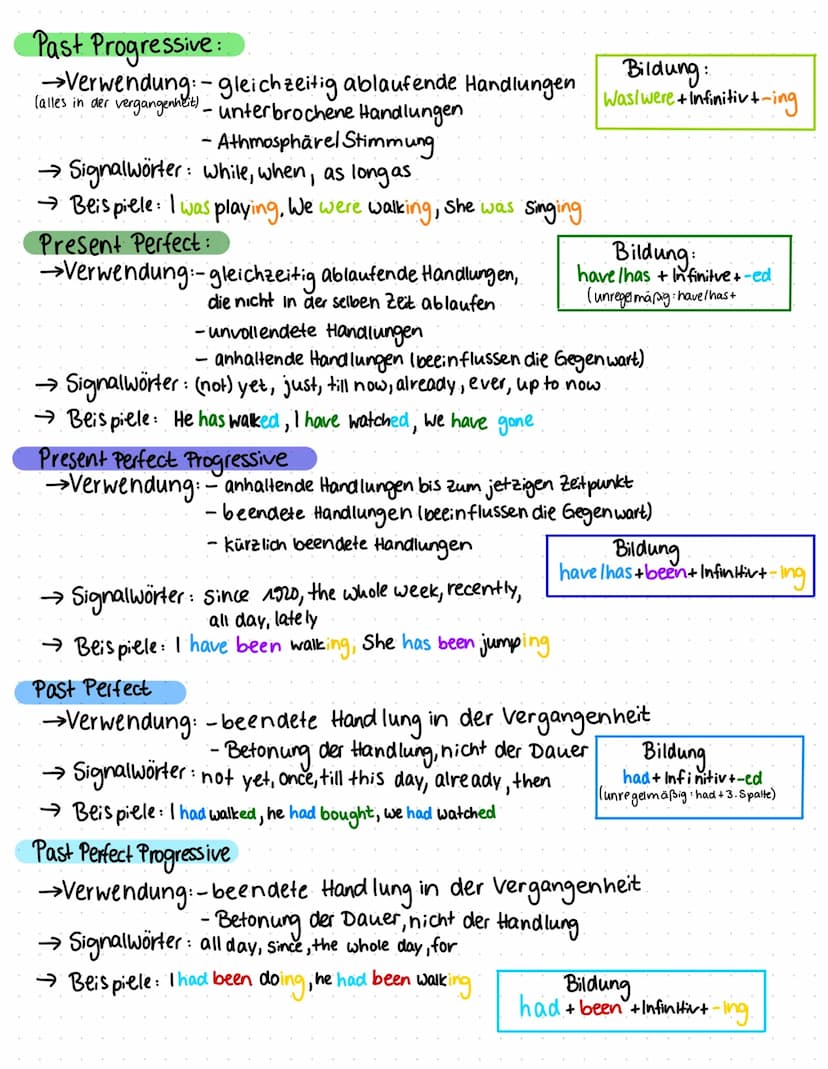 Past Progressive:
→Verwendung: - gleichzeitig ablaufende Handlungen
(alles in der vergangenheit) - unterbrochene Handlungen
- Athmosphäre/Stimmung
→ Signalwörter: while, when, as long as
→ Beispiele: I was playing, We were walking, She was singing
Bildung:
was/were + Infinitiv + -ing
Present Perfect:
→Verwendung: - gleichzeitig ablaufende Handlungen,
die nicht in der selben Zeit ablaufen
- unvollendete Handlungen
- anhaltende Handlungen (beeinflussen die Gegenwart)
→ Signalwörter: (not) yet, just, till now, already, ever, up to now
→ Beispiele: He has walked, I have watched, we have gone
Bildung:
have/has + Infinitve + -ed
(unregelmäßig: have/has +
Present Perfect Progressive
→Verwendung: - anhaltende Handlungen bis zum jetzigen Zeitpunkt
- beendete Handlungen (beeinflussen die Gegenwart)
- kürzlich beendete Handlungen
→ Signalwörter: since 1920, the whole week, recently,
all day, lately
→ Beispiele: I have been walking, She has been jumping
Bildung
have/has + been + Infinitiv + -ing
Past Perfect
→Verwendung: - beendete Handlung in der Vergangenheit
- Betonung der Handlung, nicht der Dauer
→ Signalwörter: not yet, once, till this day, already, then
→ Beispiele: I had walked, he had bought, we had watched
Bildung
had + Infinitiv + -ed
(unregelmäßig: had + 3. Spalte)
Past Perfect Progressive
→Verwendung: - beendete Handlung in der Vergangenheit
- Betonung der Dauer, nicht der Handlung
→ Signalwörter: all day, since, the whole day, for
→ Beispiele: I had been doing, he had been walking
Bildung
had + been + Infinitiv + -ing